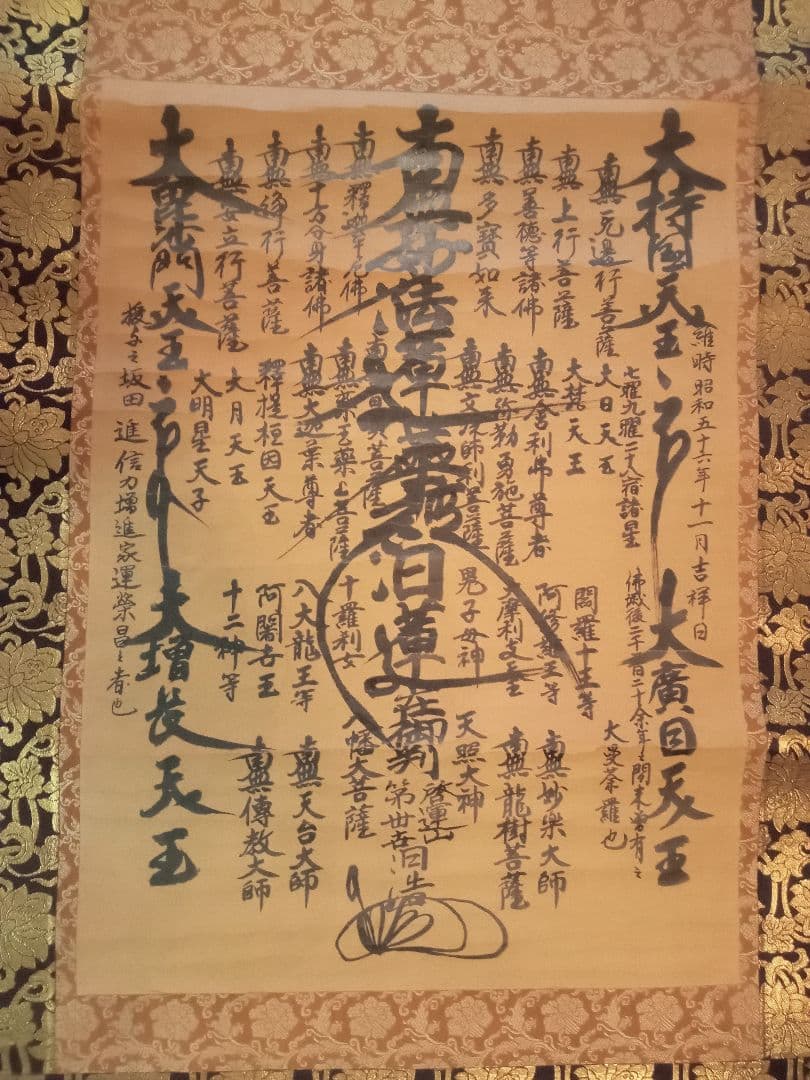 大持國天王
維時昭和五十六年十一月吉祥日
南無無邊行菩薩
南無上行菩薩
南無善德等諸佛
南無多寶如来
南無妙法蓮華経
日蓮在御判
南無釋迦牟尼佛
南無十方分身諸佛
南無浄行菩薩
南無安立行菩薩
大毘沙門天王
七曜九曜二十八宿諸星
大日天王
大梵天王
南無舎利佛尊者
南無弥勒菩薩
南無文殊師利菩薩
南無薬王薬上菩薩
南無大迦葉尊者
釋提桓因天王
大月天王
大明星天子
授与之坂田進信力増進家運榮昌之者也
大廣目天王
佛滅後二千二百二十余年之間未曽有之
大曼荼羅也
閻羅十王等
阿修羅王等
大摩利支天王
鬼子母神
十羅利女
八大龍王等
阿闍世王
十二神等
大増長天王
南無妙楽大師
南無龍樹菩薩
天照大神
八幡大菩薩
南無天台大師
南無傳教大師